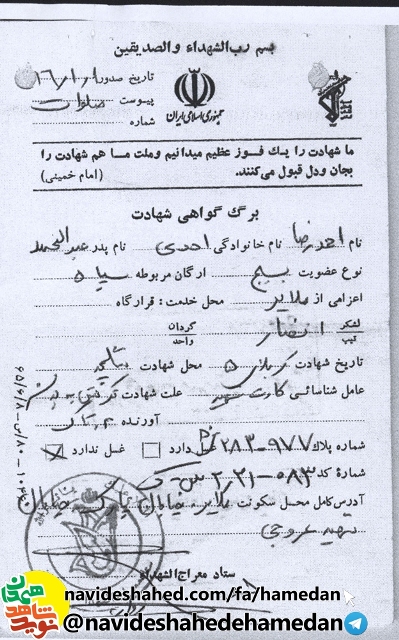 بسم رب الشهداء والصدیقین
تاریخ صدور
پیوست صلوات
شماره
جمهوری اسلامی ایران
ما شهادت را یک فوز عظیم میدانیم وملت ما هم شهادت را
بجان ودل قبول می‌کنند. (امام خمینی)
برگ گواهی شهادت
نام احمد رضا نام خانوادگی احدی نام پدر عبدالمحمد
نوع عضویت بسیج ارگان مربوطه سپاه
اعزامی از ملایر محل خدمت : قرارگاه
لشکر تیپ انصار گردان واحد
تاریخ شهادت کربلای ۵ محل شهادت شلمچه
عامل شناسائی کارت علت شهادت
آورنده
شماره پلاک ۲۸۳-۹۷۷ غسل دارد غسل ندارد
شمارهٔ کد
آدرس کامل محل سکونت ملایر خیابان پارک خیابان
شهید عروجی
ستاد معراج الشهداء
نوید شاهد همدان
navideshahed.com/fa/hamedan
@navideshahedehamedan